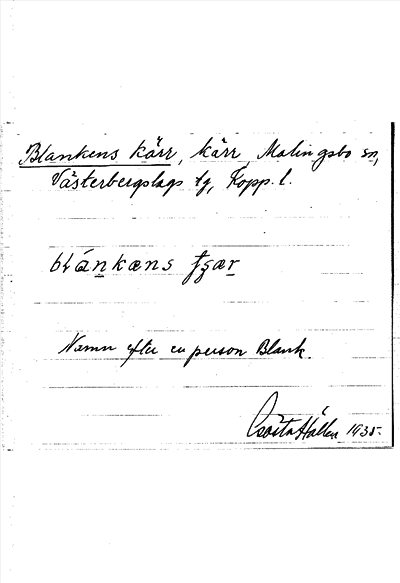 Blankens kärr, kärr, Malingsbo sn,
Västerbergslags tg, Kopp. l.
blánkæns ʃʒær
Namn efter en person Blank.
Gösta Hallén 1935.